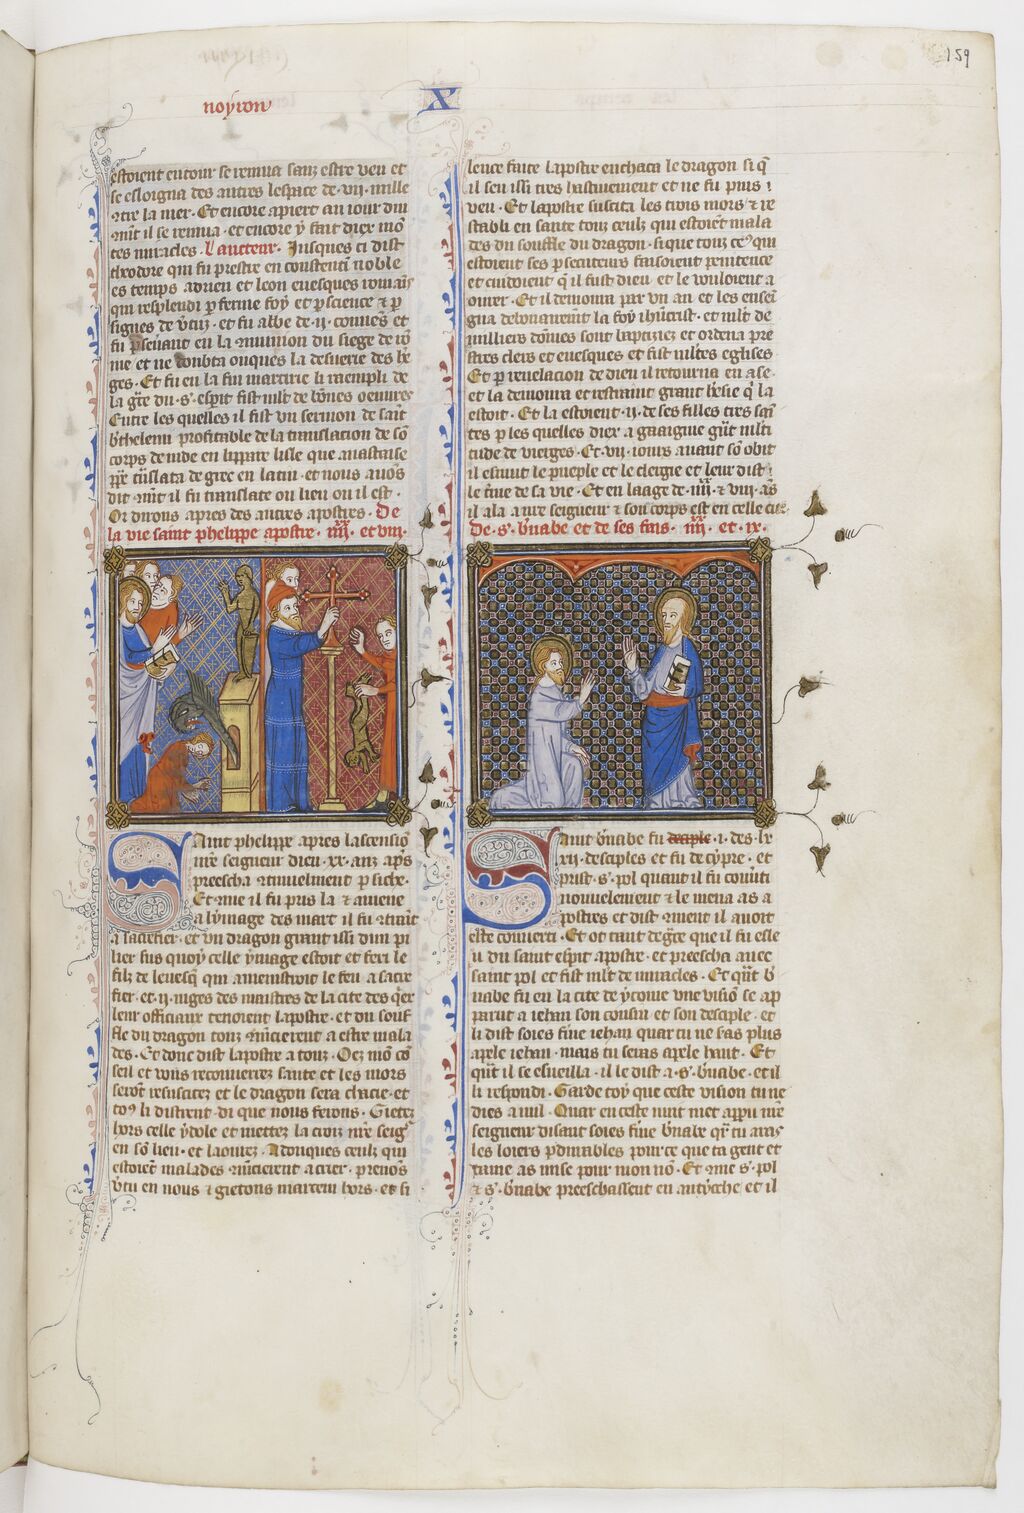 159
noyron
X
estoient entour se remua sanz estre veu et
se esloigna des autres lespace de .vii. mille
entre la mer. Et encore apiert au iour dui
9ment il se remua. et encore y fait diex mo
tes miracles. l'aucteur. Jusques ci dist
theodore qui fu prestre en constenti noble
es temps adrien et leon euesques romais
qui resplendi p ferme foy et p science & p
signes de vtuz. et fu albe de .ii. couues et
fu pseuant en la munion du siege de ro
me et ne doubta onques la desuerie des be
ges. Et fu en la fin martirie li raempli de
la gre du .s. esprit fist mlt de bones oeuures
Entre les quelles il fist vn sermon de saint
bthelemi profitable de la translacion de so
corps de inde en lippare lisle que anastaise
translata de grec en latin. et nous auos
dit 9mt il fu translate ou lieu ou il est.
Or dirons apres des autres apostres. De
la vie saint phelippe apostre. iiii. et viii.
Saint phelippe apres lascensio
nre seigneur dieu .xx. anz aps
preescha 9tinuelment p siche.
Et 9me il fu pris la & amene
a lymage des mart il fu 9traint
a sacrefier. et vn dragon grant issi dun pi
lier sus quoy celle ymage estoit et feri le
filz de leuesq qui amenistroit le feu a sacre
fier. et .ii. iuges des maistres de la cite des qex
leur officiaux tenoient lapostre. et du souf
fle du dragon touz 9mencierent a estre mala
des. Et donc dist lapostre a touz. Oez mo co
seil et vous recouuerrez sante et les mors
seront resuscitez et le dragon sera chacie. et
to9 li distrent. di que nous ferons. Gietez
hors celle ydole et mettez la croiz nre seigr
en so lieu. et laourez. Adonques ceulz qui
estoiet malades 9mencierent a crier. prenos
vtu en nous & gietons martem hors. et si
lence faite lapostre enchaca le dragon si q
il sen issi tres hastiuement et ne fu puis
veu. Et lapostre suscita les trois mors & re
stabli en sante touz ceulz qui estoiet mala
des du souffle du dragon. si que touz ce9 qui
estoient ses psecuteurs faisoient penitence
et cuidoient q il fust dieu et le vouloient a
ourer. Et il demoura par vn an et les ensei
gna delouaument la foy ihucrist. et mlt de
milliers domes sont baptiziez et ordena pre
stres clers et euesques et fist mltes eglises
Et p reuelacion de dieu il retourna en ase.
et la demoura et restraint grant heresie q la
estoit. Et la estoient .ii. de ses filles tres sai
tes p les quelles diex a gaaigne gnt multi
tude de vierges. Et .vii. iours auant so obit
il esmut le pueple et le clergie et leur dist
le tme de sa vie. Et en laage de .iiii. & viii. ans
il ala a nre seigneur & son corps est en celle cite.
De .s. bnabe et de ses fais. iiii. et .ix.
Saint bnabe fu desciple .i. des lx
xii. desciples et fu de cypre. et
prist .s. pol quant il fu conuti
nouuelement & le mena as a
postres et dist 9ment il auoit
este conuerti. Et ot tant de gre que il fu esle
u du saint esprit apostre. et preescha auec
saint pol et fist mlt de miracles. Et qnt b
nabe fu en la cite de yconie vne visio se ap
parut a iehan son cousin et son desciple. et
li dist soies fme iehan quar tu ne sas plus
apele iehan. mais tu seras apele haut. Et
qnt il se esueilla. il le dist a .s. bnabe. et il
li respondi. Garde toy que ceste vision tu ne
dies a nul. Quar en ceste nuit met apparu nre
seigneur disant soies fme bnabe qr tu aras
les loiers pdurables pour ce que ta gent et
tame as mise pour mon no. Et 9me .s. pol
& .s. bnabe preeschassent en antyoche et il